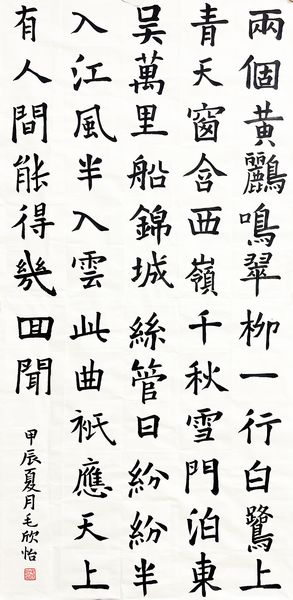 兩個黃鸝鳴翠柳一行白鷺上
青天窗含西嶺千秋雪門泊東
吴萬里船錦城絲管日紛紛半
入江風半入雲此曲衹應天上
有人間能得幾回聞
甲辰夏月毛欣怡